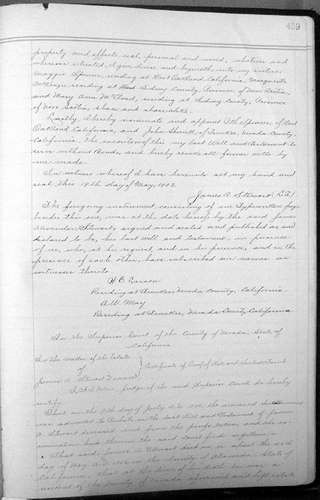 459
property and effects real, personal and mixed, whatever and
wherever situated, I give, devise and bequeath, unto my sisters
Maggie Spence, residing at West Oakland, California, Marguerite
McKenzie, residing at Sidney County, Province of Nova Scotia,
and Mary Ann McCloud, residing at Sidney County, Province
of Nova Scotia, share and share alike.
Lastly, I hereby nominate and appoint Spence, of West
Oakland California, and John Sherritt, of Truckee, Nevada County,
California. The executors of this my last Will and Testament to
serve without Bonds, and hereby revoke all former wills by
me made.
In witness whereof I have hereunto set my hand and
seal this 19th day of May, 1902.
James A. Stewart (L.S.)
The foregoing instrument, consisting of one Typewritten page
besides this one, was at the date hereof by the said James
Alexander Stewart, signed and sealed and published as, and
declared to be, his last will and testament, in presence
of us, who, at his request, and in his presence, and in the
presence of each other, have subscribed our names as
witnesses thereto.
Residing at Truckee Nevada County, California.
A.W. May
Residing at Truckee, Nevada County California
In the Superior Court of the County of Nevada, State of
California.
In the matter of the Estate
of
James A. Stewart Deceased
Certificate of Proof of Will and
I, Judge of the said Superior Court do hereby
certify:
That on the day of July A.D. 190, the annexed
was admitted to Probate as the last Will and Testament of James
A. Stewart deceased and from the proofs taken and the
examination had therein the said Court finds as follows:
That said James A. Stewart died on or about the
day of May A.D. 1902 in the County of State of
California. That at the time of his death he was a
resident of the County of Nevada aforesaid and left estate